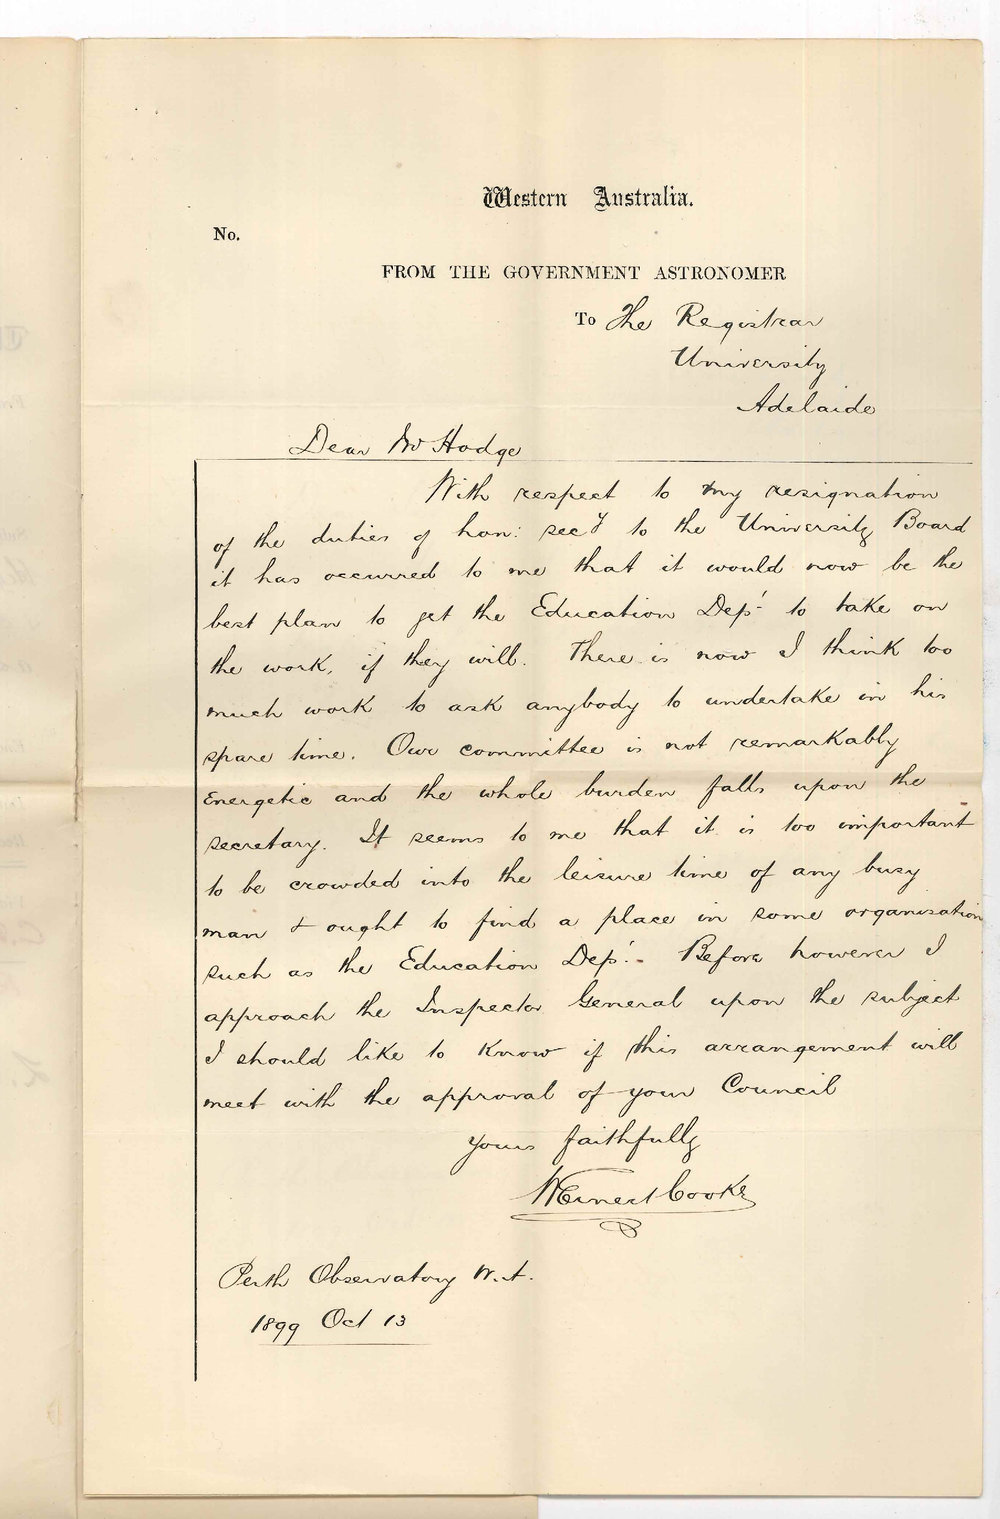 Western Australia.
No.
FROM THE GOVERNMENT ASTRONOMER
To The Registrar
University
Adelaide
Dear Mr Hodge
With respect to my resignation
of the duties of hon: secy to the University Board
it has occurred to me that it would now be the
best plan to get the Education Dept to take on
the work, if they will. There is now I think too
much work to ask anybody to undertake in his
spare time. Our committee is not remarkably
energetic and the whole burden falls upon the
secretary. It seems to me that it is too important
to be crowded into the leisure time of any busy
man & ought to find a place in some organisation
such as the Education Dept. Before however I
approach the Inspector General upon the subject
I should like to know if this arrangement will
meet with the approval of your Council
Yours faithfully
W Ernest Cooke
Perth Observatory W.A.
1899 Oct 13